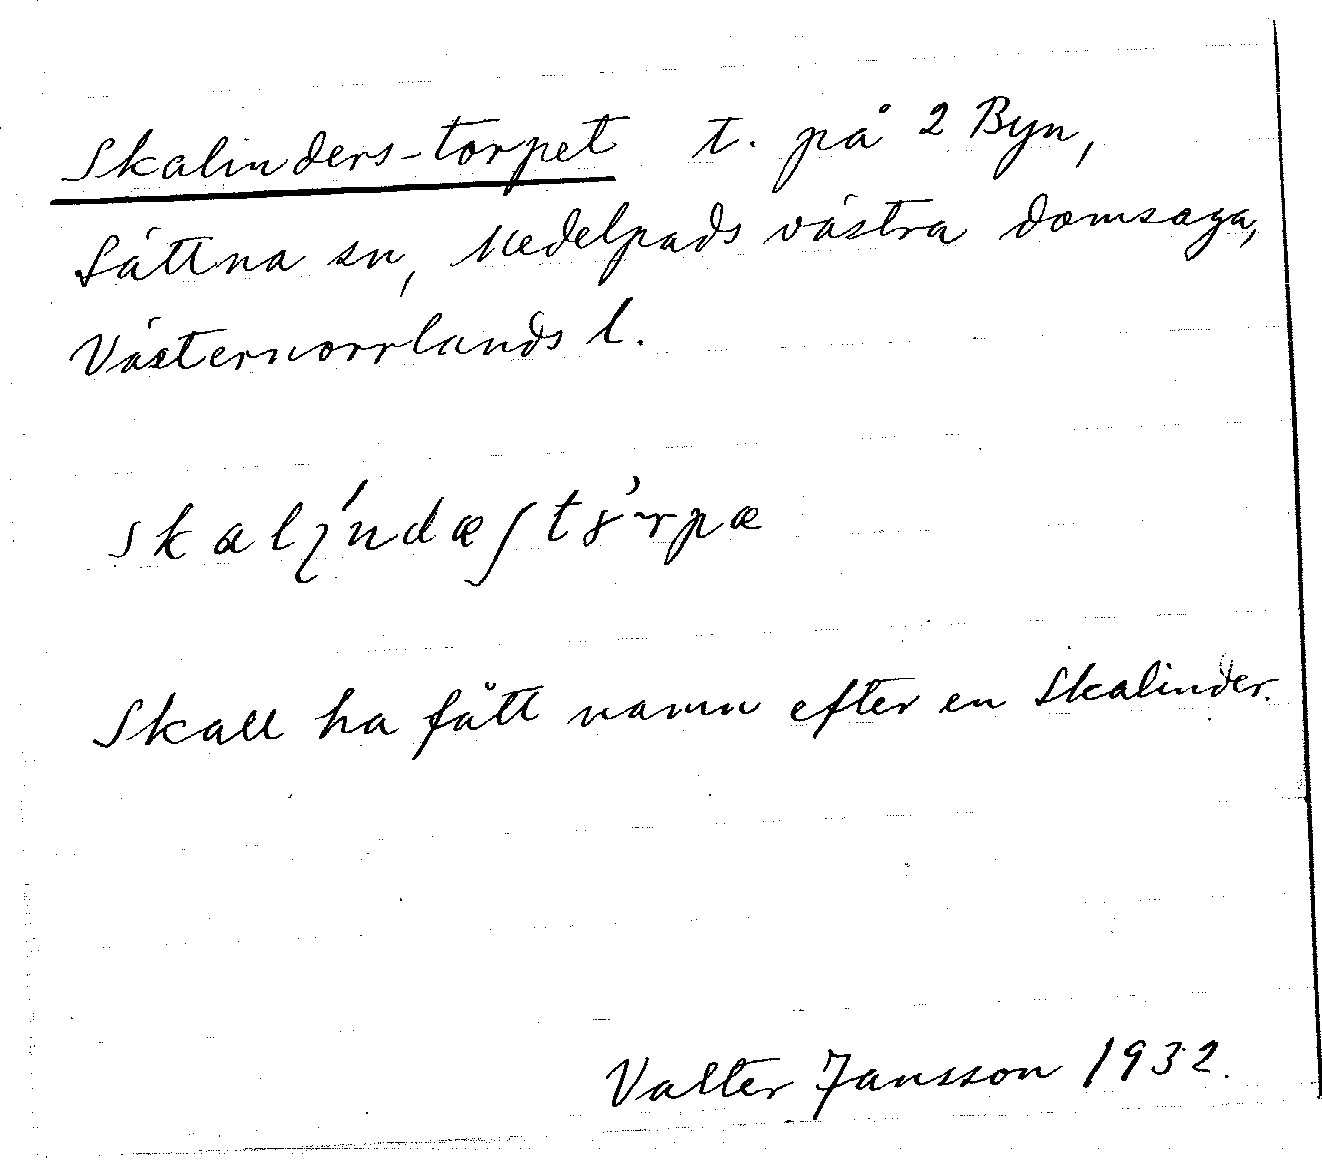 Skalinders-torpet t. på 2 Byn,
Sättna sn, Medelpads västra domsaga,
Västernorrlands l.
Skall ha fått namn efter en Skalinder.
Valter Jansson 1932.